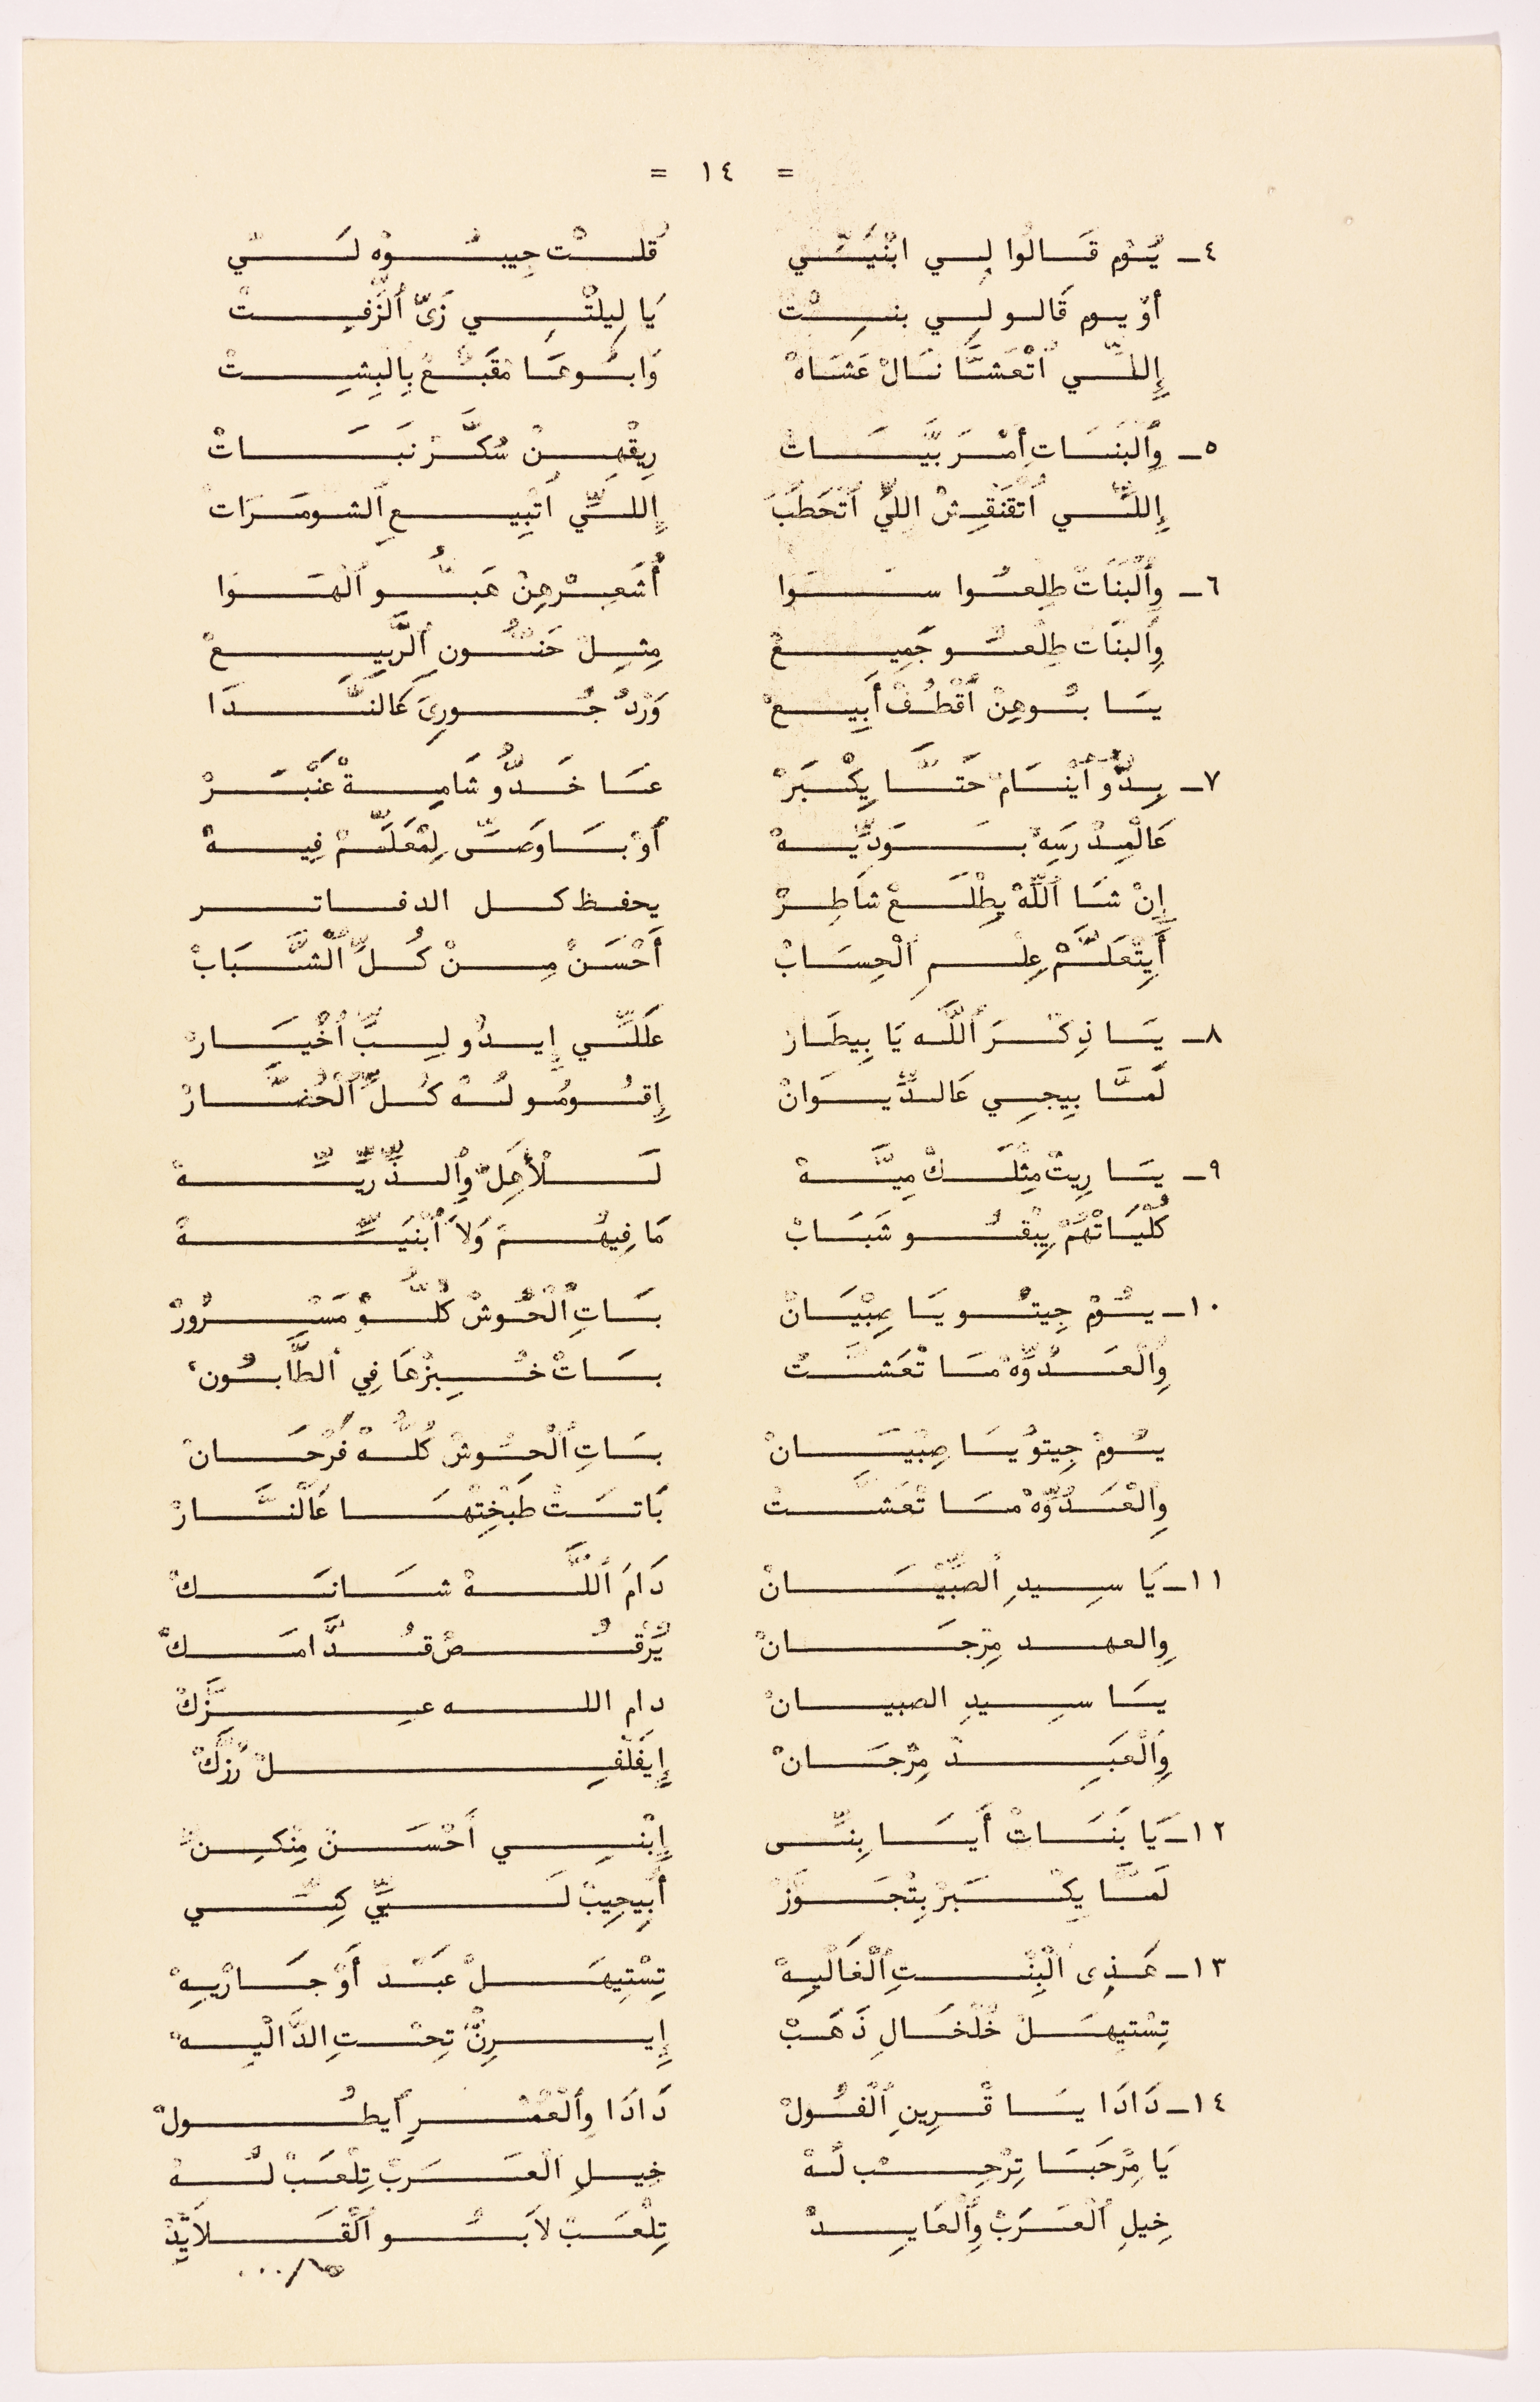 = ١٤ =
٤ـ يُوْم قَالُوا لِي ابْنَيْتِي قُلْت جِيبُوْه لَيّ
أوْ يوم قَالو لِي بنِتْ يَا لِيلْتِي زَىّ ٱلزِّفِتْ
إِللِّي ٱتْعَشَّا نَالْ عَشَاهْ وَابُوهَا مْقَبَّعْ بِالْبِشِتْ
٥ـ وِٱلْبَنَاتِ أمْرَبَّيَاتْ رِيقْهِنْ سُكَّرْ نَبَاتْ
إِللِّي ٱتْقَنْقِشْ اللِّي ٱتْحَطِّبْ إِللِّي ٱتْبِيعِ ٱلشومَرَات
٦ـ وِٱلْبَنَاتْ طِلْعُوا سَوَا أُشَعِرْهِنْ هَبُّو ٱلْهَوَا
وِٱلبنَات طِلْعُو جَمِيعْ مِثِلْ حَنُّونِ ٱلرَّبِيعْ
يَا بُوهِنْ ٱقْطُفْ أَبِيعْ وَرْدْ جُورِىَ كَالنَّدَا
٧ـ بِدُّو ٱيْنَامْ حَتَّا يِكْبَرْ عَا خَدُّو شَامِةْ عَنْبَرْ
عَالْمِدْرَسِهْ بَوَدِّيهْ أُوْ بَاوَصِّى لِمْعَلِّمْ فِيهْ
إِنْ شَا ٱللّهْ يِطْلَعْ شَاطِرْ يحفظ كل الدفاتر
أَيِتْعَلَّمْ عِلْمِ ٱلْحِسَابْ أَحْسَنْ مِنْ كُلِّ ٱلْشَّبَابْ
٨ـ يَا ذِكْرَ ٱللَّه يَا بِيطَارْ عَلَلِّي إِيدُو لِبِّ ٱخْيَارْ
لَمَّا بِيجِي عَالدِّيوَانْ إِقُومُو لُهْ كُلِّ ٱلْحُضَّارْ
٩ـ يَا رِيتْ مِثْلَكْ مِيَّهْ لَلْأَهِلْ وِٱلذِّرِّيِّهْ
كُلْيَاتْهُمْ يِبْقُو شَبَابْ مَا فِيهُمْ وَلاَ ٱبْنَيِّهْ
١٠ـ يُوْمْ جِيتُو يَا صِبْيَانْ بَاتِ ٱلْحُوشْ كُلُّوْ مَسْرُورْ
وِٱلْعَدُوِّهْ مَا تْعَشَّتْ بَاتْ خُبِزْهَا فِي ٱلطَّابُونْ
يُومْ جِيتوُ يَا صِبْيَانْ بَاتِ ٱلْحُوشْ كُلُّهْ فَرْحَانْ
وِالْعَدُوِّهْ مَا تْعَشَّتْ بَاتَتْ طَبْخِتْهَا عَالْنَّارْ
١١ـ يَا سِيدِ ٱلصِّبْيَانْ دَامَ ٱللَّهْ شَانَكْ
وِالعهد مِرْجَانْ يُرْقُصْ قُدَّامَكْ
يَا سِيدِ الصبيانْ دام الله عِزَّكْ
وِٱلْعَبِدْ مِرْجَانْ إِيفَلْفِلْ رُزَّكْ
١٢ـ يَا بَنَاتْ أَيَا بِنِّى إِبْنِي أَحْسَنْ مِنْكِنْ
لَمَّا يِكْبَرْ بِتْجَوَّزْ أَبِيجِيبْ لَيِّ كِنِّي
١٣ـ هَذِى ٱلْبِنْتِ ٱلْغَالْيِهْ تِسْتِيهَلْ عَبْد أَوْ جَارْيِهْ
تِسْتِيهَلْ خُلْخَالِ ذَهَبْ إِيرِنّْ تِحْتِ الدَّالْيِهْ
١٤ـ دَادَا يَا قْرِينِ ٱلْفُولْ دَادَا وِٱلْعُمْرِ أيطُولْ
يَا مِرْحَبَا تِرْحِبْ لُهْ خِيلِ ٱلْعَرَبْ تِلْعَبْ لُهْ
خِيلِ ٱلْعَرَبْ وِٱلْعَايِدْ تِلْعَبْ لاَبُو ٱلْقَلاَيِّدْ
١٥/...